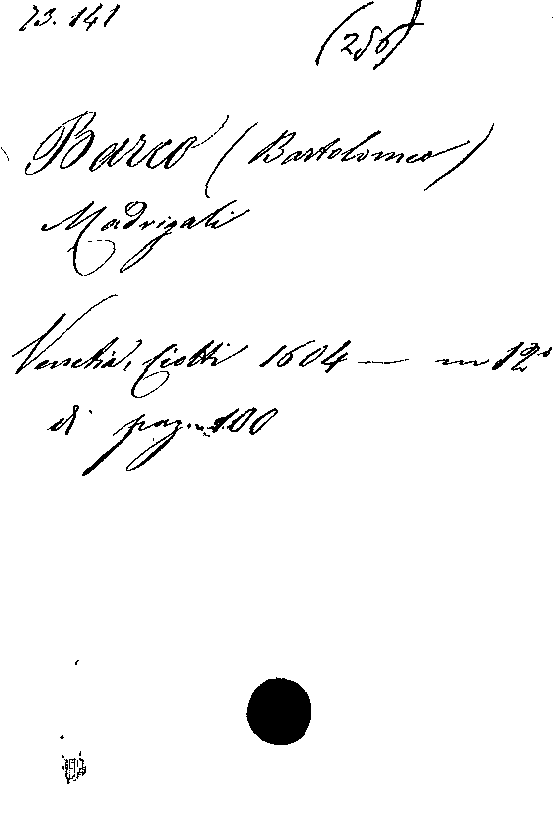 73.141
(256)
Barco (Bartolomeo)
Madrigali
Venetia, Ciotti 1604 — in 12°
di pag. 100